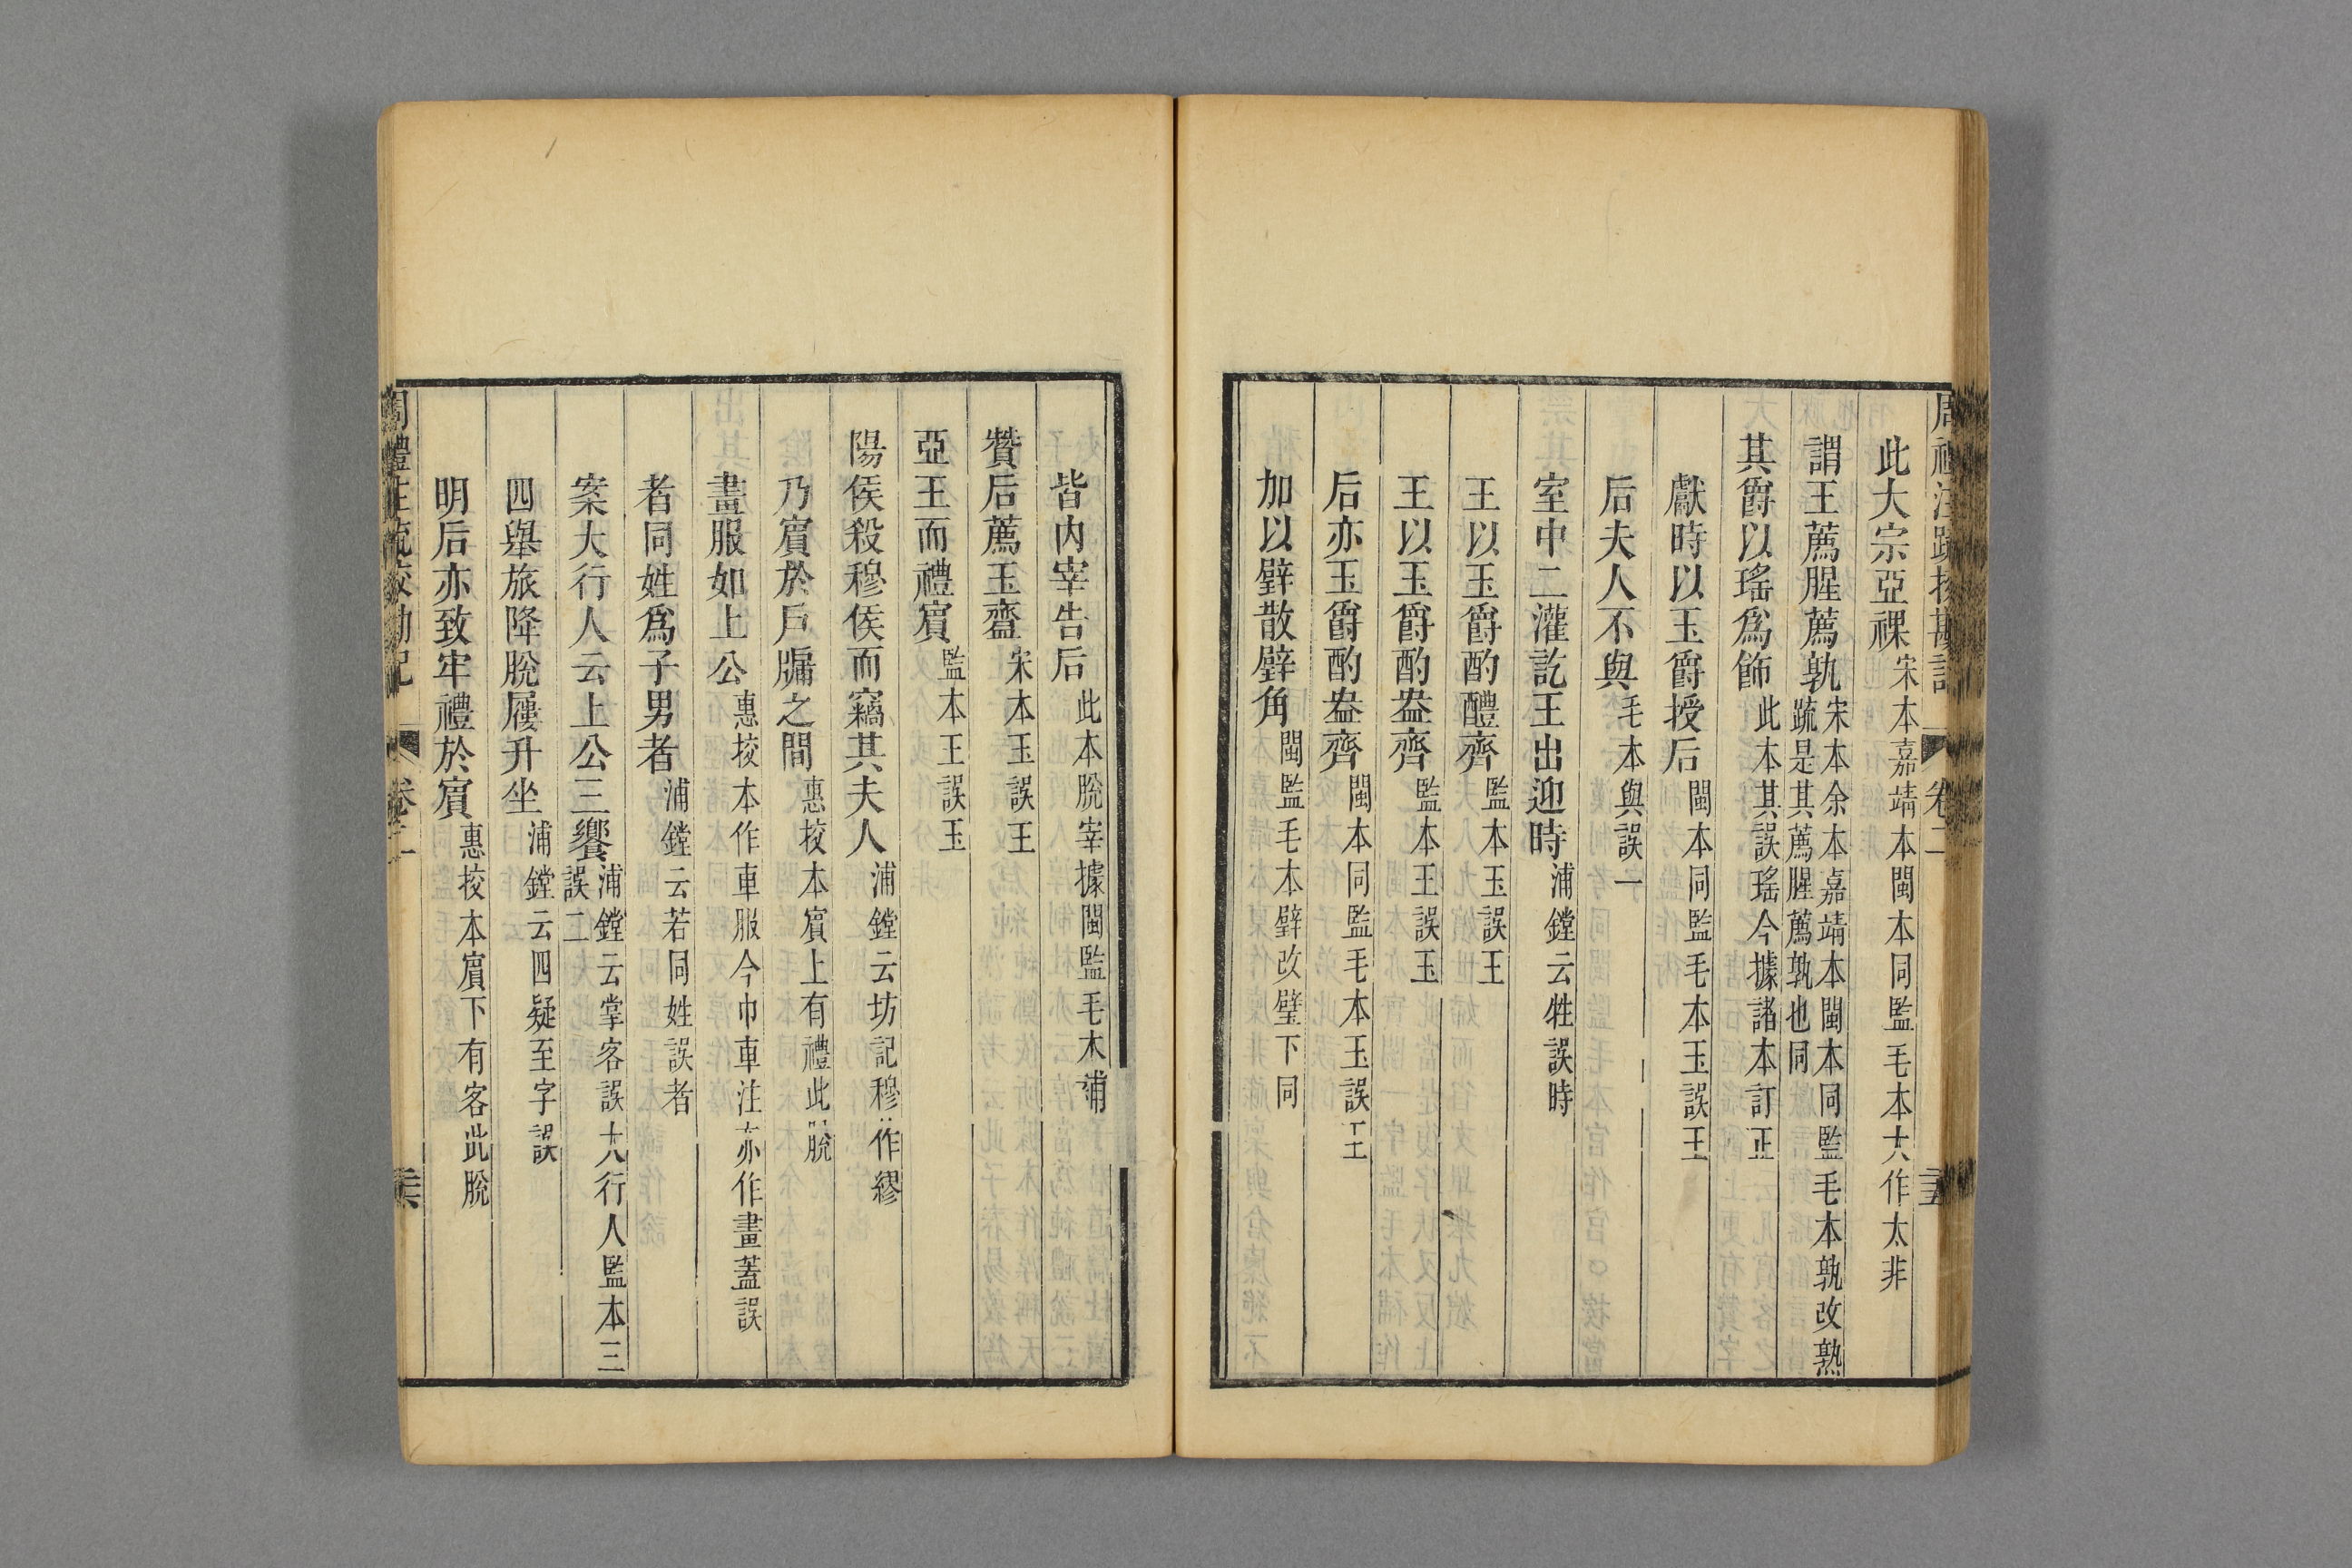 此大宗亞祼宋本嘉靖本閩本同監毛本大作太非
謂王薦腥薦孰宋本余本嘉靖本閩本同監毛本孰改熟
疏是其薦腥薦孰也同
其爵以瑤爲飾此本其誤瑤今據諸本訂正
獻時以玉爵授后閩本同監毛本玉誤王
后夫人不與毛本與誤一
室中二灌訖王出迎時浦鏜云牲誤時
王以玉爵酌醴齊監本玉誤王
王以玉爵酌盎齊監本王誤玉
后亦玉爵酌盎齊閩本同監毛本玉誤王
加以璧散璧角閩監毛本璧改璧下同
周禮注疏挍勘記 卷二
皆內宰告后此本脫宰據閩監毛本補
贊后薦玉齍宋本玉誤王
亞王而禮賓監本王誤玉
陽侯殺穆侯而竊其夫人浦鏜云坊記穆作繆
乃賓於戶牖之間惠挍本賓上有禮此脫
畫服如上公惠挍本作車服今巾車注亦作畫蓋誤
者同姓爲子男者浦鏜云若同姓誤者
案大行人云上公三饗浦鏜云掌客誤大行人監本三
誤二
四舉旅降脫屨升坐浦鏜云四疑至字誤
明后亦致牢禮於賓惠挍本賓下有客此脫
周禮注疏挍勘記 卷二